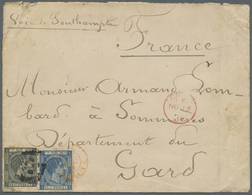 Voie de Southampton
France
Monsieur Armand Lom-
bard à Sommières
Département du
Gard